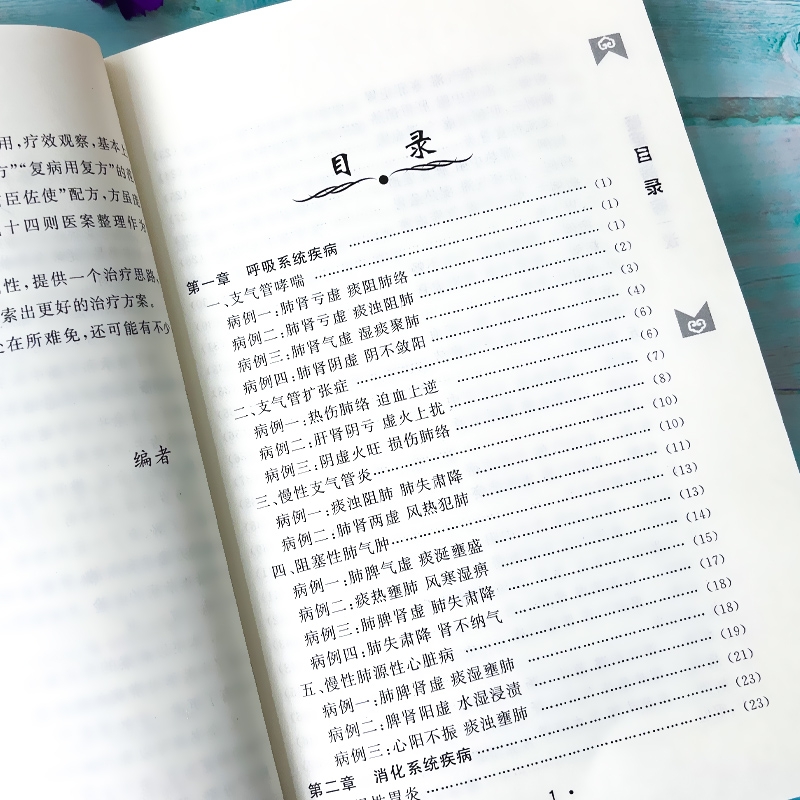 用,疗效观察,基本上
方”“复病用复方”的
臣佐使”配方,方虽
十四则医案整理作为
性,提供一个治疗思路,
索出更好的治疗方案。
处在所难免,还可能有不少
编者
目 录
目录
第一章 呼吸系统疾病 (1)
一、支气管哮喘 (1)
病例一:肺肾亏虚 痰阻肺络 (1)
病例二:肺肾亏虚 痰浊阻肺 (2)
病例三:肺肾气虚 湿痰聚肺 (3)
病例四:肺肾阴虚 阴不敛阳 (4)
二、支气管扩张症 (6)
病例一:热伤肺络 迫血上逆 (6)
病例二:肝肾阴亏 虚火上扰 (7)
病例三:阴虚火旺 损伤肺络 (8)
三、慢性支气管炎 (10)
病例一:痰浊阻肺 肺失肃降 (10)
病例二:肺肾两虚 风热犯肺 (11)
四、阻塞性肺气肿 (13)
病例一:肺脾气虚 痰涎壅盛 (13)
病例二:痰热壅肺 风寒湿痹 (14)
病例三:肺脾肾虚 肺失肃降 (15)
病例四:肺失肃降 肾不纳气 (17)
五、慢性肺源性心脏病 (18)
病例一:肺脾肾虚 痰湿壅肺 (18)
病例二:脾肾阳虚 水湿浸渍 (19)
病例三:心阳不振 痰浊壅肺 (21)
第二章 消化系统疾病 (23)
性胃炎 (23)
1